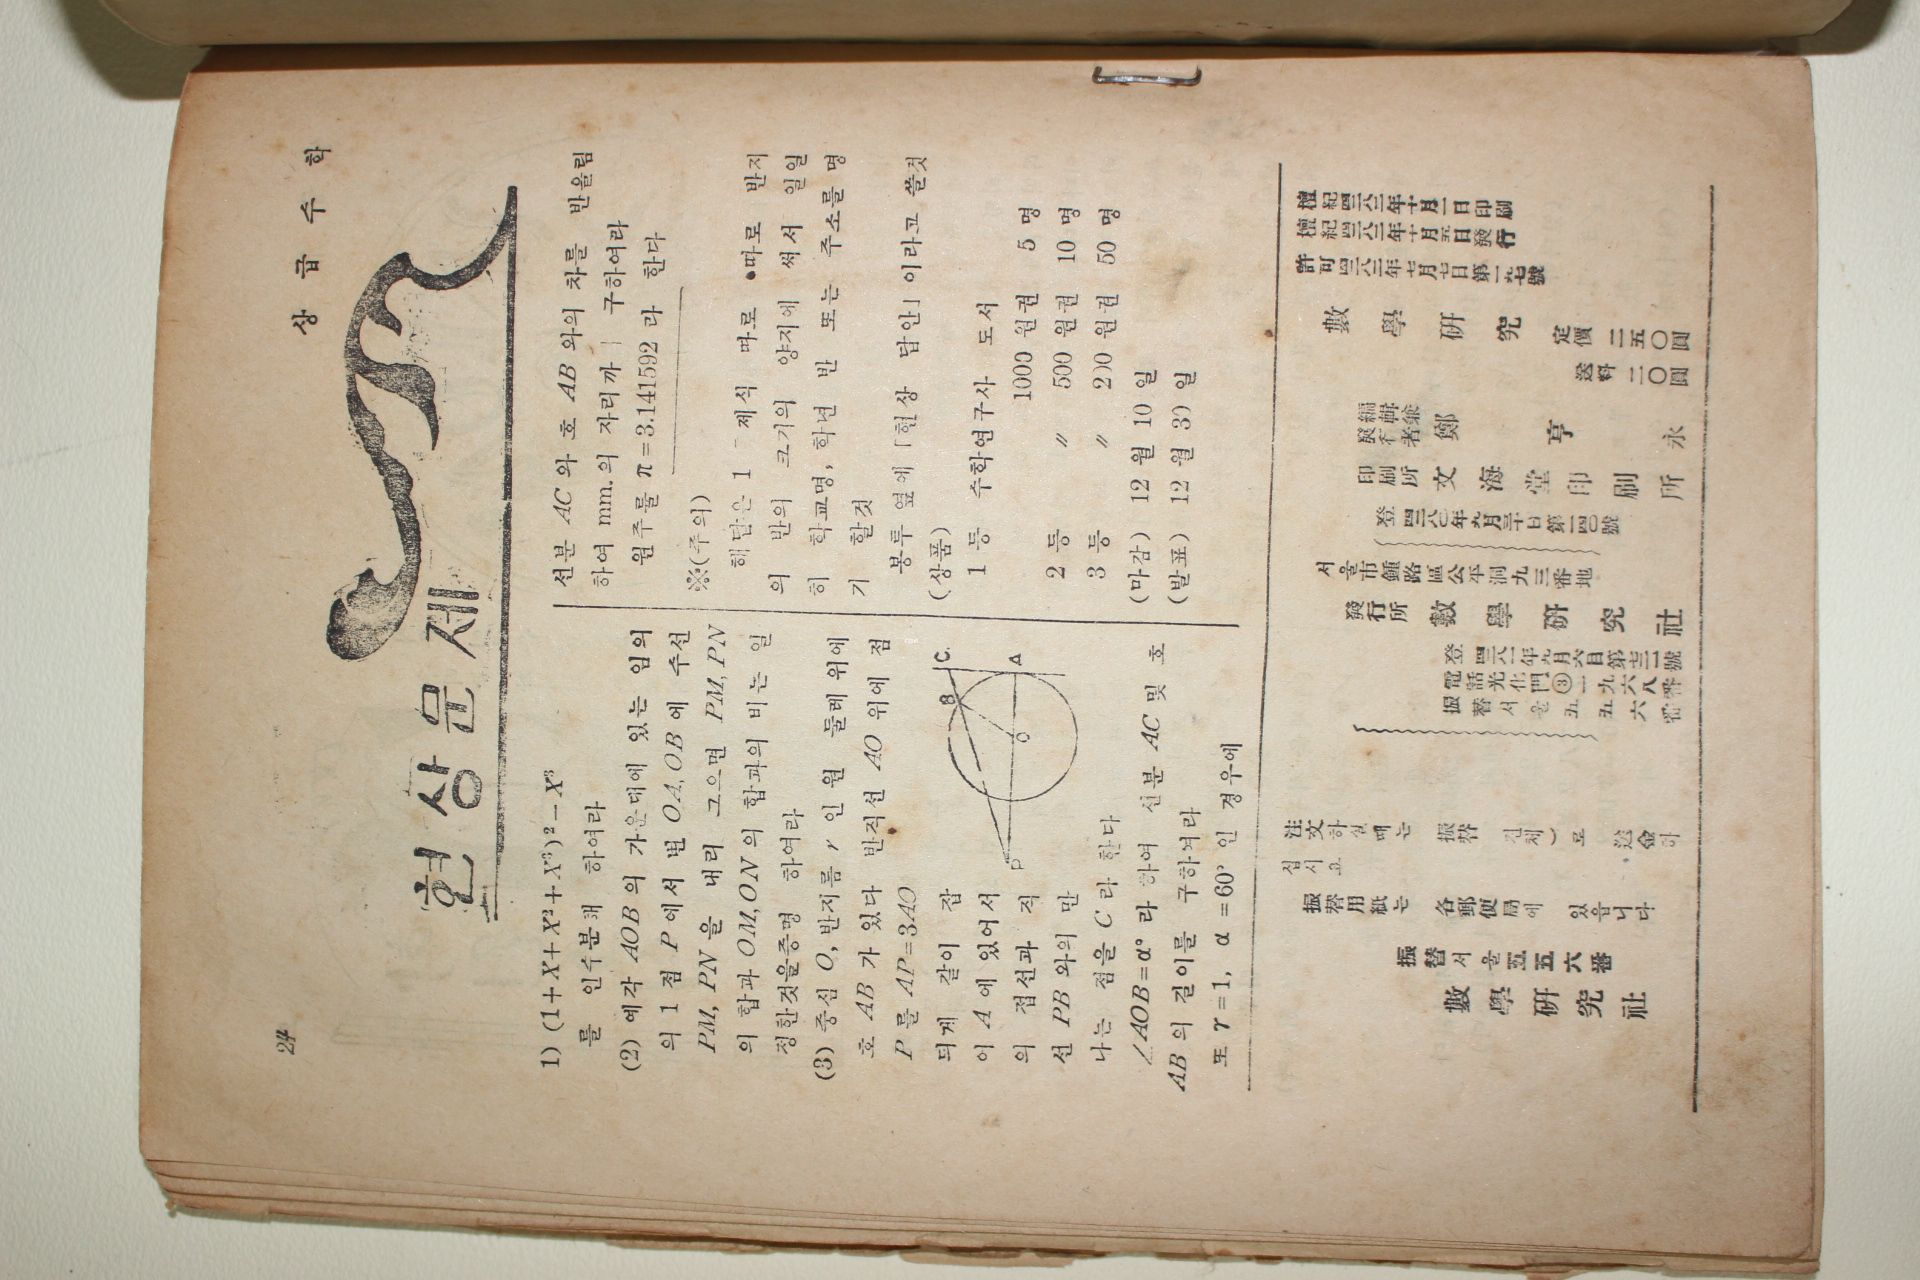 24
상급수학
현상문제
1) (1+X+X²+X³)²−X³
를 인수분해 하여라
(2) 예각 AOB의 가운데에 있는 임의
의 1점 P에서 변 OA, OB에 수선
PM, PN을 내리 그으면 PM, PN
의 합과 OM, ON의 합과의 비는 일
정한것을증명 하여라
(3) 중심 O, 반지름 r 인 원 둘레 위에
호 AB가 있다 반직선 AO 위에 점
P를 AP=3AO
되게 같이 잡
어 A에 있어서
의 접선과 직
선 PB와의 만
나는 점을 C라 한다
∠AOB=α° 라 하여 선분 AC 및 호
AB의 길이를 구하여라
또 r=1, α=60° 인 경우에
B
C
A
O
P
선분 AC와 호 AB와의 차를 반올림
하여 mm.의 자리까 구하여라
원주률 π=3.141592 라 한다
※(주의)
해답은 1제식 따로 따로 반지
의 반의 크기의 양지에 써서 일일
히 학교명, 학년 반 또는 주소를 명
기 할것
봉투 옆에 「현상 답안」이라고 쓸것
(상품)
1등 수학연구사 도서
1000원권 5명
2등 〃 500원권 10명
3등 〃 200원권 50명
(마감) 12월 10일
(발표) 12월 30일
檀紀四二八二年十月一日印刷
檀紀四二八二年十月五日發行
許可四二八二年七月七日第一九七號
數學硏究
定價 二五〇圓
送料 二〇圓
編輯兼
發行者 鄭亨永
印刷所 文海堂印刷所
登四二八〇年九月三十日第一四〇號
서울市鍾路區公平洞九三番地
發行所 數學硏究社
登四二八一年九月六日第七三一號
電話光化門③一九六八番
振替서울五五六番
注文하실때는 振替 로 送金하
십시요
振替用紙는 各郵便局에 있읍니다
振替서울五五六番
數學硏究社